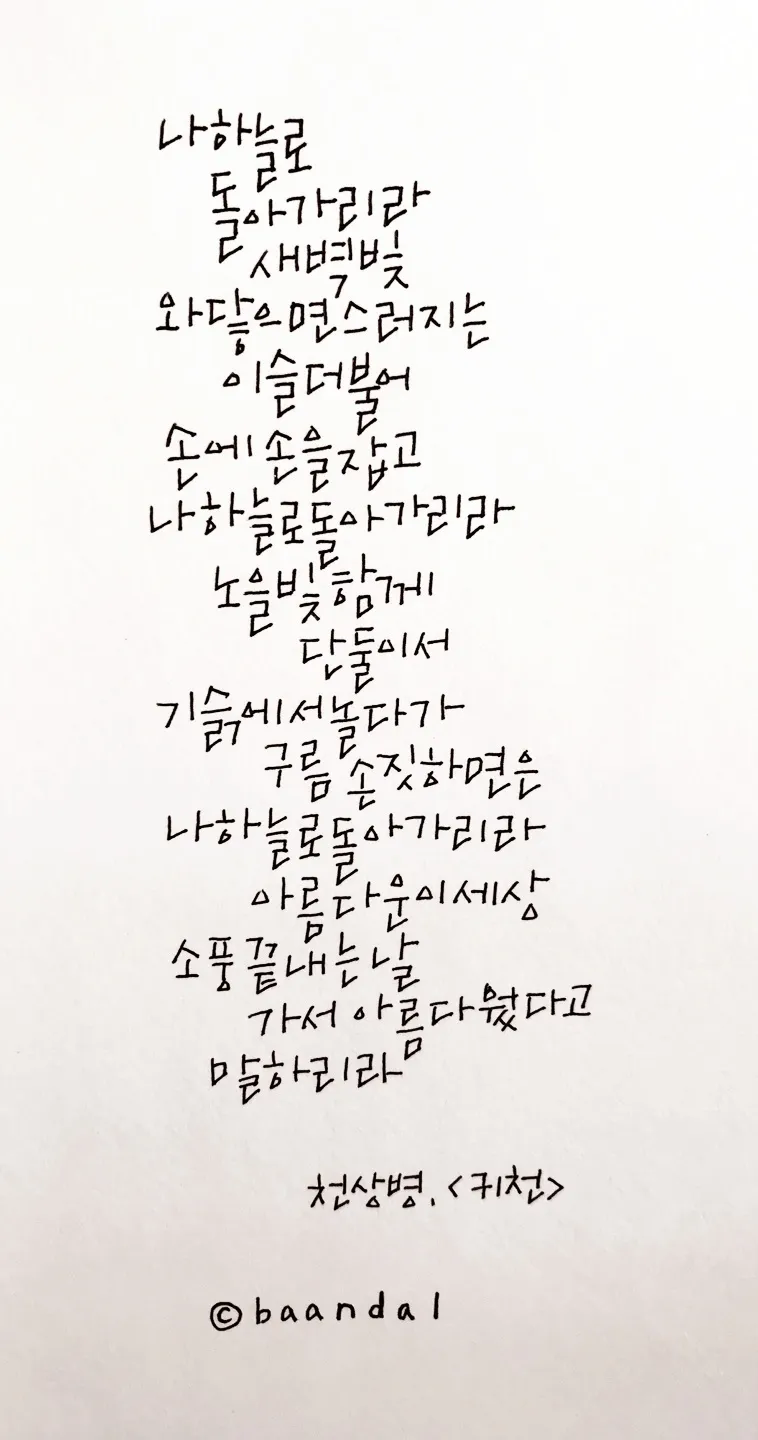 나 하늘로
돌아가리라
새벽빛
와 닿으면 스러지는
이슬 더불어
손에 손을 잡고
나 하늘로 돌아가리라
노을빛 함께
단둘이서
기슭에서 놀다가
구름 손짓하면은
나 하늘로 돌아가리라
아름다운 이 세상
소풍 끝내는 날
가서 아름다웠다고
말하리라
천상병, <귀천>
© baandal